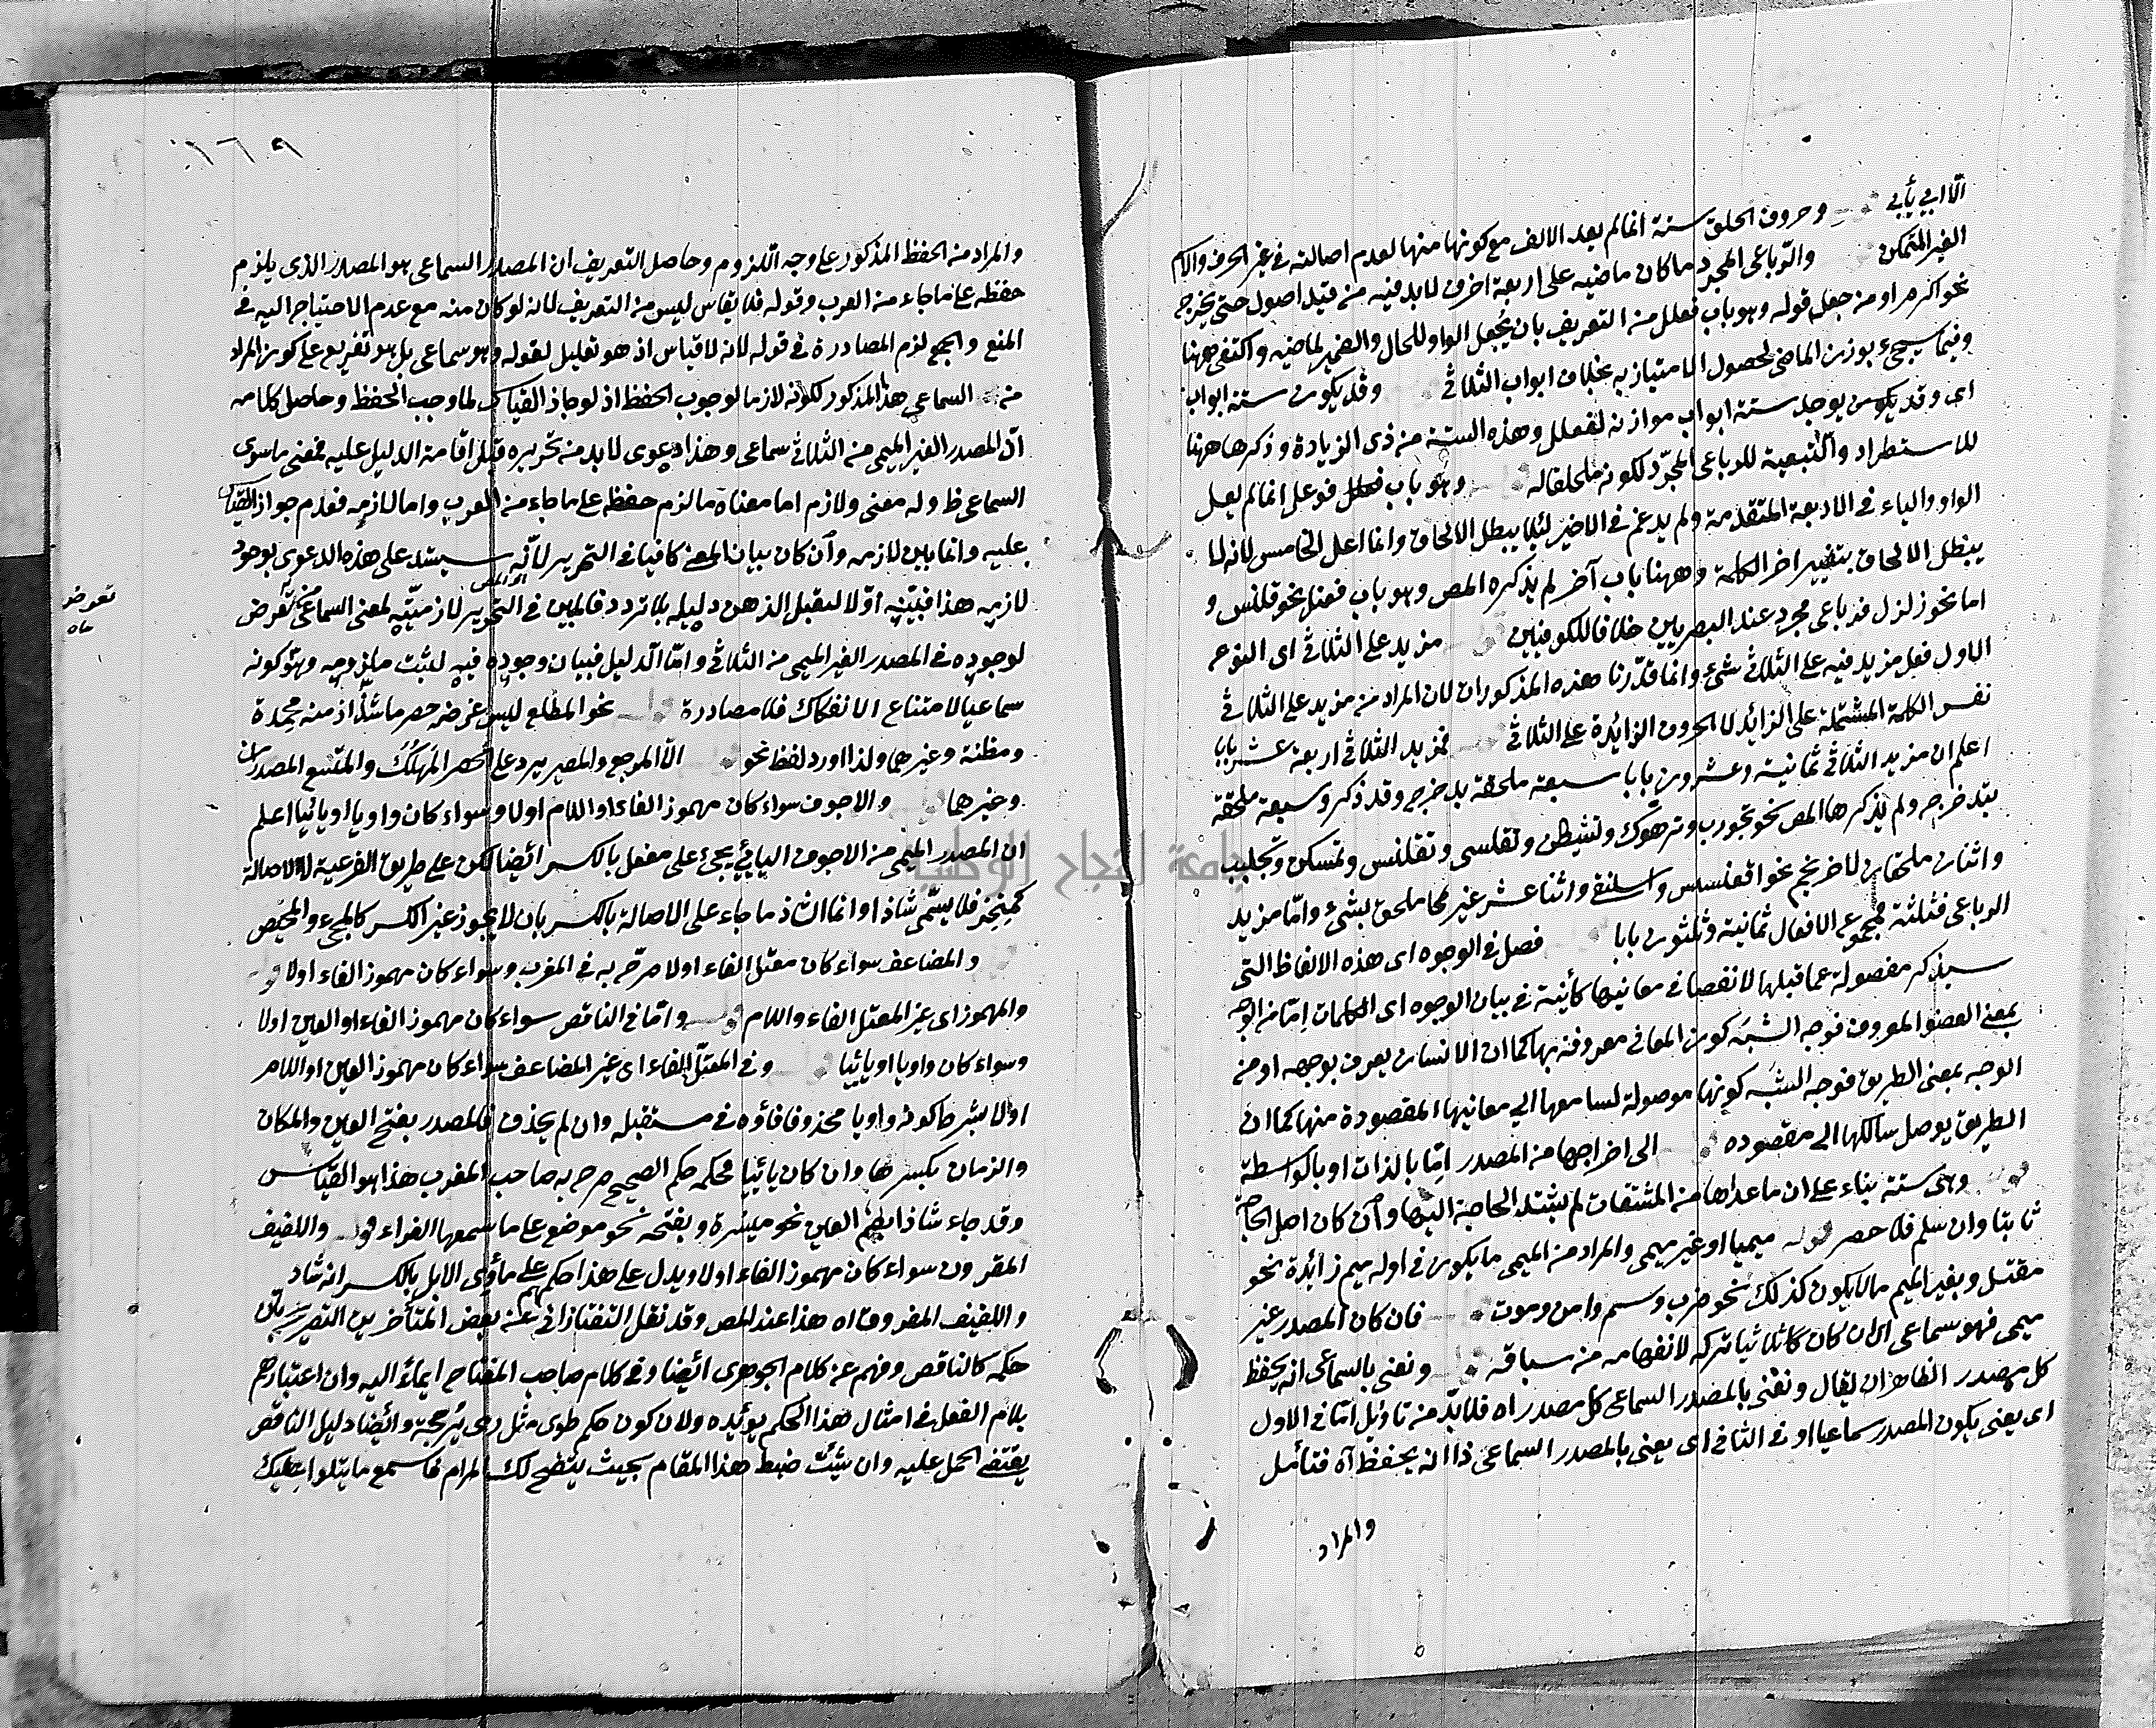 الا ابى يأبى وحروف الحلق ستة انما لم يعد الالف مع كونها منها لعدم اصالته فى غير الحرف والاسم
الغير المتمكن والرباعى المجرد ما كان ماضيه على اربعة احرف لا بد فيه من قيد اصول حتى يخرج
نحو اكرم او من جعل قوله وهو باب فعلل من التعريف بان يجعل الواو للحال والضمير لماضيه واكتفى ههنا
وفيما سيجىء بوزن الماضى لحصول الامتياز به بخلاف ابواب الثلاثى وقد يكون ستة ابواب
اى وقد يكون يوجد ستة ابواب موازنة لفعلل وهذه الستة من ذى الزيادة وذكرها ههنا
للاستطراد والتبعية للرباعى المجرد لكونه ملحقا له وهو باب فوعل انما لم يعل
الواو والياء فى الاربعة المتقدمة ولم يدغم فى الاخير لئلا يبطل الالحاق وانما اعل الخامس لانه لما
يبطل الالحاق بتغيير اخر الكلمة وههنا باب آخر لم يذكره المص وهو باب فعنل نحو قلنس و
اما نحو زلزل فرباعى مجرد عند البصريين خلافا للكوفيين مزيد على الثلاثى اى النوع
الاول فعل مزيد فيه على الثلاثى شىء وانما قدرنا هذه المذكورات لان المراد من مزيد على الثلاثى
نفس الكلمة المشتملة على الزائد لا الحروف الزائدة على الثلاثى فمزيد الثلاثى اربعة عشر بابا
اعلم ان مزيد الثلاثى ثمانية وعشرون بابا سبعة ملحقة بدحرج وقد ذكر وسبعة ملحقة
بتدحرج ولم يذكرها المص نحو تجورب وترهوك وتشيطن وتقلسى وتقلنس وتمسكن وتجلبب
واثنان ملحقان لاحرنجم نحو اقعنسس واسلنقى واثنا عشر غير ملحق بشىء واما مزيد
الرباعى فثلثة فمجموع الافعال ثمانية وثلثون بابا فصل فى الوجوه اى هذه الالفاظ التى
سيذكر مفصولة عما قبلها لانفصال معانيها كائنة فى بيان الوجوه اى الكلمات اما من الوجه
بمعنى العضو المعروف فوجه الشبه كون المعانى معروفة بها كما ان الانسان يعرف بوجهه او من
الوجه بمعنى الطريق فوجه الشبه كونها موصولة لسامعها الى معانيها المقصودة منها كما ان
الطريق يوصل سالكها الى مقصوده الى اخراجها من المصدر اما بالذات او بالواسطة
وهى ستة بناء على ان ما عداها من المشتقات لم يشتد الحاجة اليها وان كان اصل الحاجة
ثابتا وان سلم فلا حصر قوله ميميا او غير ميمى والمراد من الميمى ما يكون فى اوله ميم زائدة نحو
مقتل وبغير الميم ما لا يكون كذلك نحو ضرب وسم وامن وموت فان كان المصدر غير
ميمى فهو سماعى ان كان ثلاثيا تركه لانفهامه من سباقه ونعنى بالسماعى انه يحفظ
كل مصدر الظاهر ان يقال ونعنى بالمصدر السماعى كل مصدر اه فلا بد من تاويل اما فى الاول
اى يعنى بكون المصدر سماعيا او فى الثانى اى يعنى بالمصدر السماعى ذا انه يحفظ آه فتأمل
والمراد
١٦٩
والمراد من الحفظ المذكور على وجه اللزوم وحاصل التعريف ان المصدر السماعى هو المصدر الذى يلزم
حفظه على ما جاء من العرب وقوله فلا يقاس ليس من التعريف لانه لو كان منه مع عدم الاحتياج اليه فى
المنع والجمع لزم المصادرة فى قوله لانه لا قياس اذ هو تعليل لقوله وهو سماعى بل هو تفريع على كون المراد
من السماعى هذا المذكور لكونه لازما لوجوب الحفظ اذ لو جاز القياس لما وجب الحفظ وحاصل كلامه
ان المصدر الغير الميمى من الثلاثى سماعى وهذا دعوى لا بد من تحريره قبل اقامة الدليل عليه فمعنى ما سوى
السماعى ظ وله معنى ولازم اما معناه ما لزم حفظه على ما جاء من العرب واما لازمه فعدم جواز القياس
عليه وانما بين لازمه وان كان بيان المعنى كافيا فى التحرير لانه سيستدل على هذه الدعوى بوجود
لازمه هذا فبينه اولا ليقبل الذهن دليله بلا تردد فالمبين فى التحرير لازميته لمعنى السماعى تعرض
لوجوده فى المصدر الغير الميمى من الثلاثى واما الدليل فببيان وجوده فيه ليثبت ملزومه وهو كونه
سماعيا لامتناع الانفكاك فلا مصادرة نحو المطلع ليس غرضه حصر ما شذ اذ منه محمدة
ومظنة وغيرهما ولذا اورد لفظ نحو الا المرجع والمصير يرد على الحصر المهلك والمتسع المصدران
وغيرها والاجوف سواء كان مهموز الفاء او اللام اولا وسواء كان واويا او يائيا اعلم
ان المصدر الميمى من الاجوف اليائى يجىء على مفعل بالكسر ايضا لكن على طريق الفرعية لا الاصالة
فلا يسمى شاذا وانما الشاذ ما جاء على الاصالة بالكسر بان لا يجوز غير الكسر كالمجىء والمحيض
والمضاعف سواء كان معتل الفاء اولا صرح به فى المغرب وسواء كان مهموز الفاء اولا
والمهموز اى غير المعتل الفاء واللام قوله واما فى الناقص سواء كان مهموز الفاء او العين اولا
وسواء كان واويا او يائيا وفى المعتل الفاء اى غير المضاعف سواء كان مهموز العين او اللام
اولا بشرط كونه واويا محذوفا فاؤه فى مستقبله وان لم يحذف فالمصدر بفتح العين والمكان
والزمان بكسرها وان كان يائيا فحكمه حكم الصحيح صرح به صاحب المغرب هذا هو القياس
وقد جاء شاذا بضم العين نحو ميسرة وبفتحه نحو موضع على ما سمعها الفراء قوله واللفيف
المقرون سواء كان مهموز الفاء اولا ويدل على هذا حكمهم على مأوى الابل بالكسر انه شاذ
واللفيف المفروق اه هذا عند المص وقد نقل التفتازانى عن بعض المتأخرين التصريح بان
حكمه كالناقص وفهم عن كلام الجوهرى ايضا وفى كلام صاحب المفتاح ايماء اليه وان اعتبارهم
بلام الفعل فى امثال هذا الحكم يؤيده ولان كون حكم طوى مثل رمى يرجحه وايضا دليل الناقص
يقتضى الحمل عليه وان شئت ضبط هذا المقام بحيث يتضح لك المرام فاسمع ما يتلوا عليك